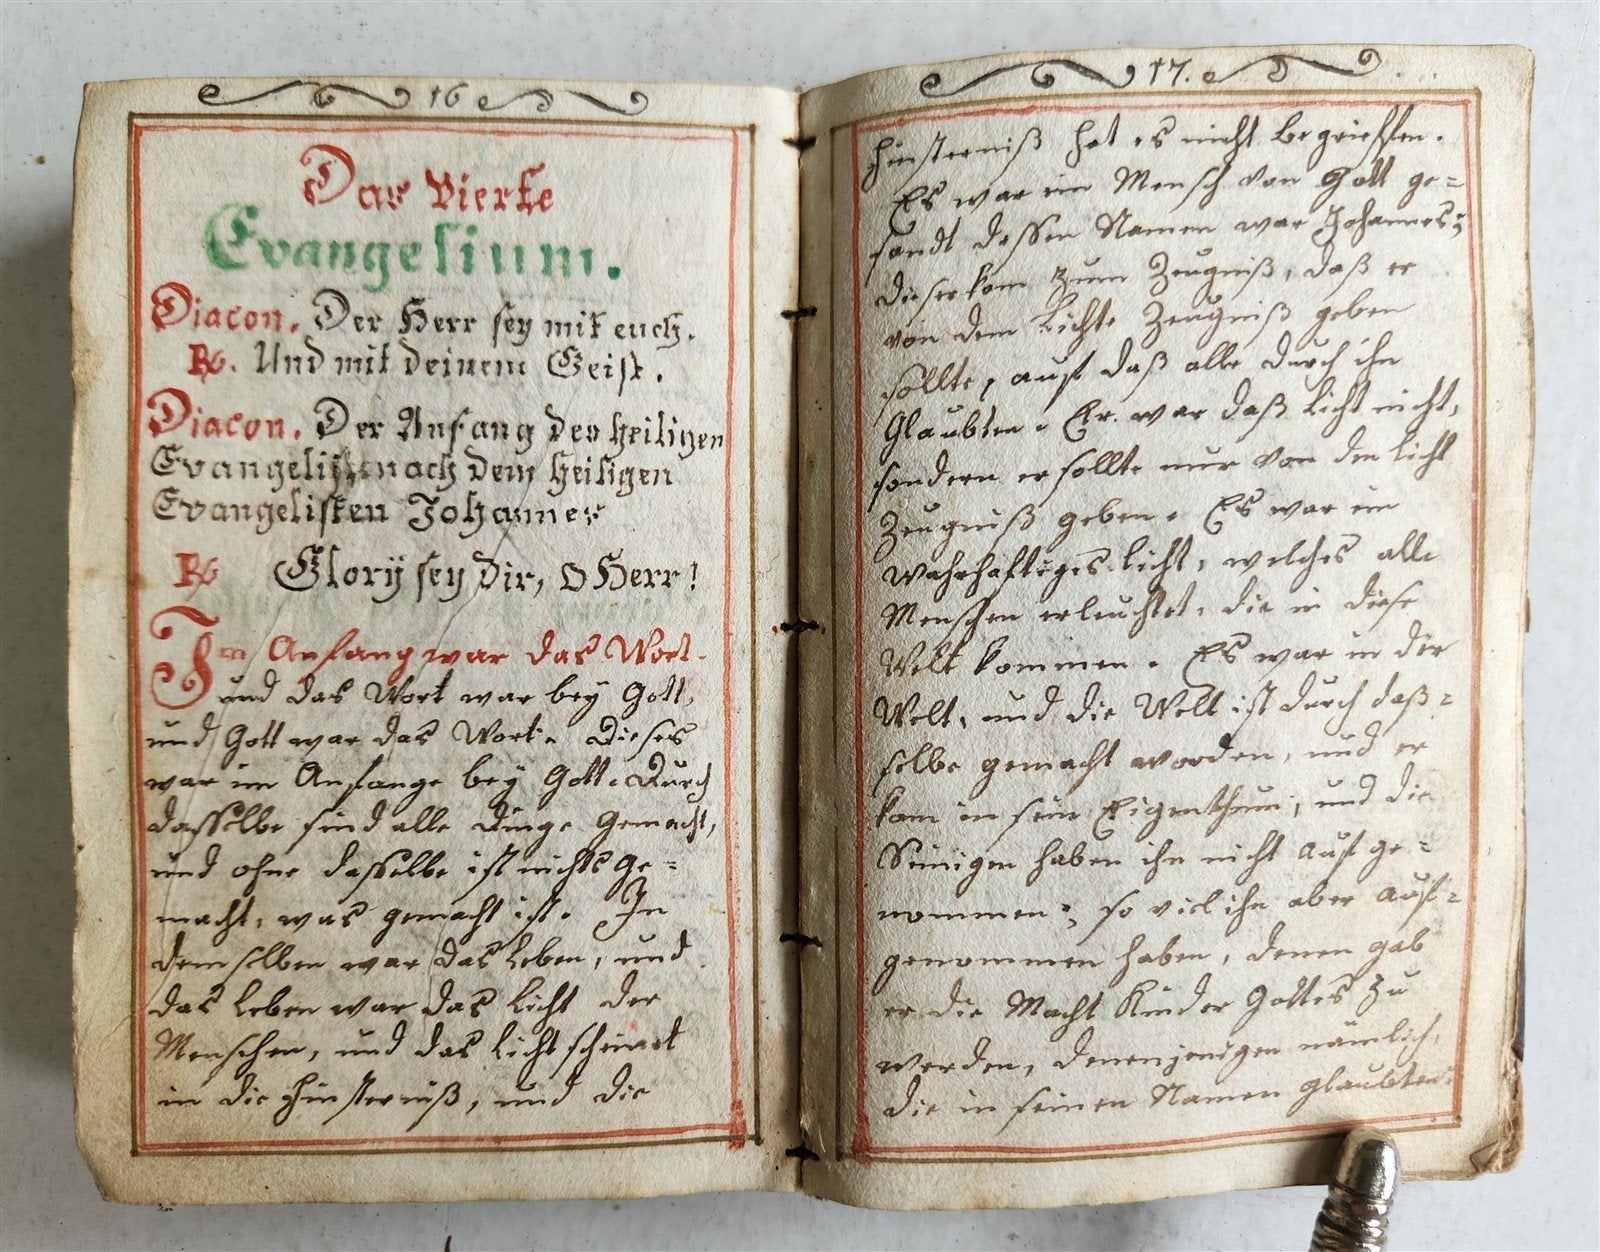 16
Das Vierte
Evangelium.
Diacon. Der Herr sey mit euch.
R. Und mit deinem Geist.
Diacon. Der Anfang des heiligen
Evangelij nach dem heiligen
Evangelisten Johannes
R Glorÿ sey dir, O Herr!
Im Anfang war das Wort.
und das Wort war beÿ Gott,
und Gott war das Wort. Dieses
war im Anfange beÿ Gott. Durch
dasselbe sind alle Dinge Gemacht,
und ohne dasselbe ist nichts ge=
macht, was gemacht ist. In
demselben war das Leben, und
das Leben war das Licht der
Menschen, und das Licht scheinet
in die Finsterniß, und die
17.
Finsterniß hat es nicht begrieffen.
Es war ein Mensch von Gott ge=
sandt dessen Namen war Johannes;
dieser kam zum Zeugniß, daß er
von dem Lichte Zeugniß geben
sollte, auf daß alle durch ihn
Glaubten. Er. war daß Licht nicht,
sondern er sollte nur von den Licht
Zeugniß geben. Es war ein
wahrhaftiges Licht, welches alle
Menschen erleuchtet, die in diese
Welt kommen. Es war in der
Welt, und die Welt ist durch daß=
selbe gemacht worden, und er
kam in sein Eigenthum, und die
Seinigen haben ihn nicht auf ge=
nommen; so viel ihn aber auf=
genommen haben, denen gab
er die Macht Kinder Gottes zu
werden, denenjenigen nämlich,
die in seinen Namen glaubten.